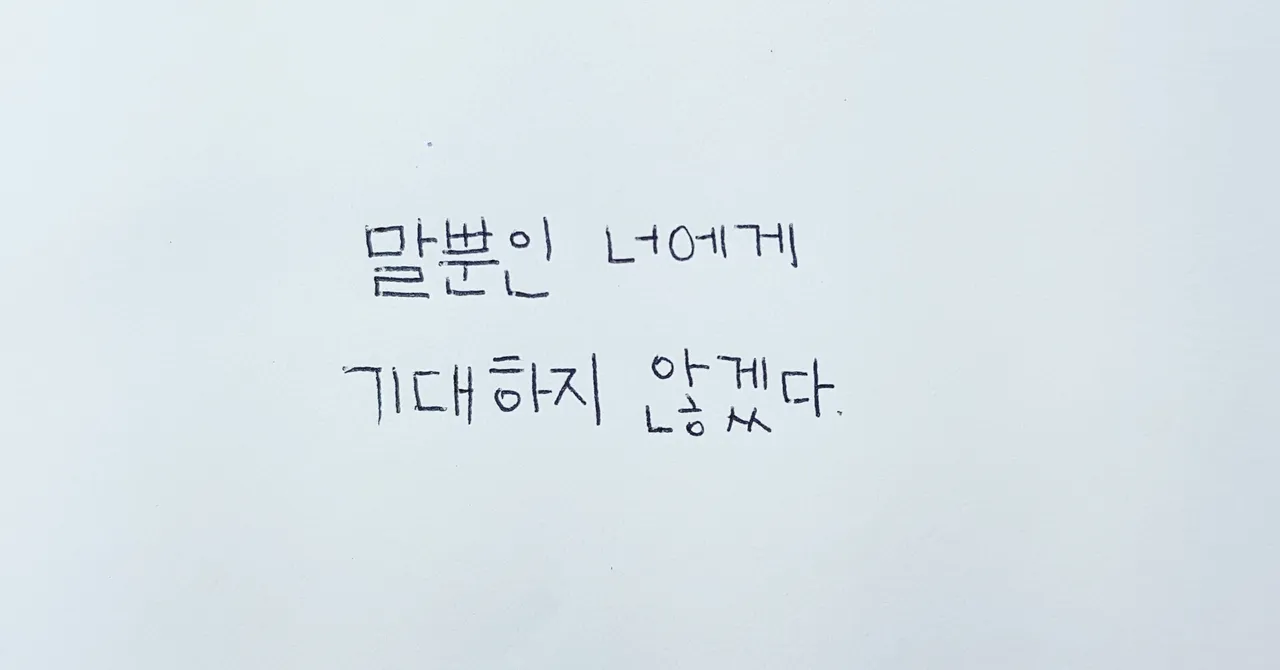 말뿐인 너에게
기대하지 않겠다.